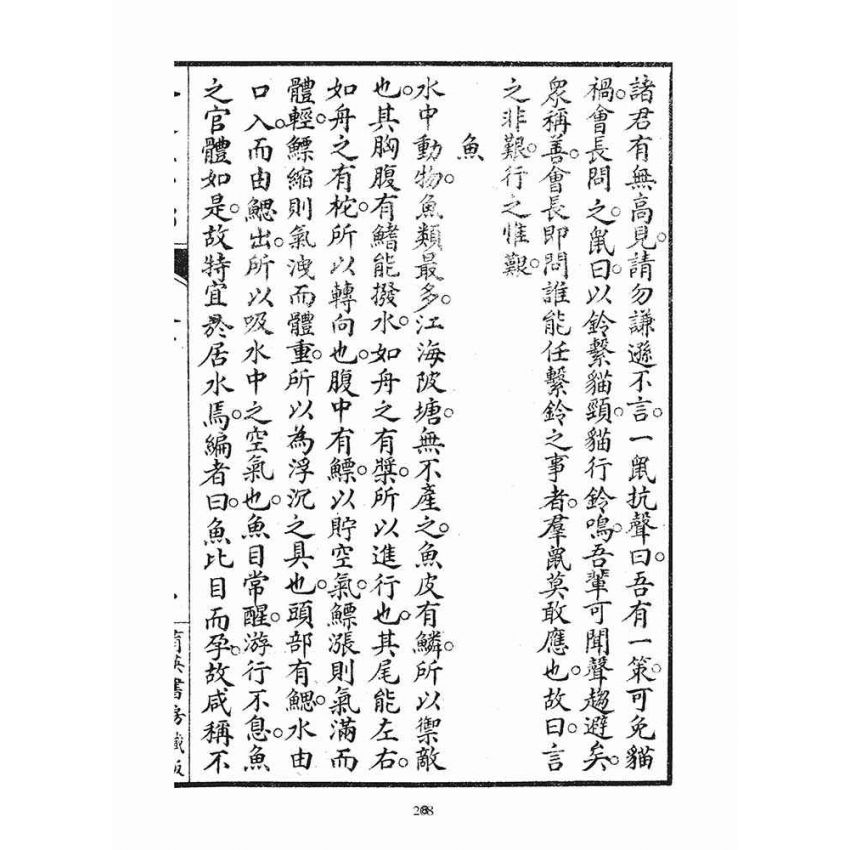 諸君有無高見。請勿謙遜不言。一鼠抗聲曰。吾有一策。可免貓
禍。會長問之。鼠曰。以鈴繫貓頸。貓行鈴鳴。吾輩可聞聲趨避矣。
眾稱善。會長即問誰能任繫鈴之事者。羣鼠莫敢應也。故曰。言
之非艱。行之惟艱。
魚
水中動物。魚類最多。江海陂塘。無不產之。魚皮有鱗。所以禦敵
也。其胸腹有鰭能撥水。如舟之有槳。所以進行也。其尾能左右。
如舟之有柁。所以轉向也。腹中有鰾。以貯空氣。鰾漲則氣滿而
體輕。鰾縮則氣洩而體重。所以為浮沉之具也。頭部有鰓。水由
口入。而由鰓出。所以吸水中之空氣也。魚目常醒。游行不息。魚
之官體如是。故特宜於居水焉。編者曰。魚比目而孕。故咸稱不
書房藏版
208